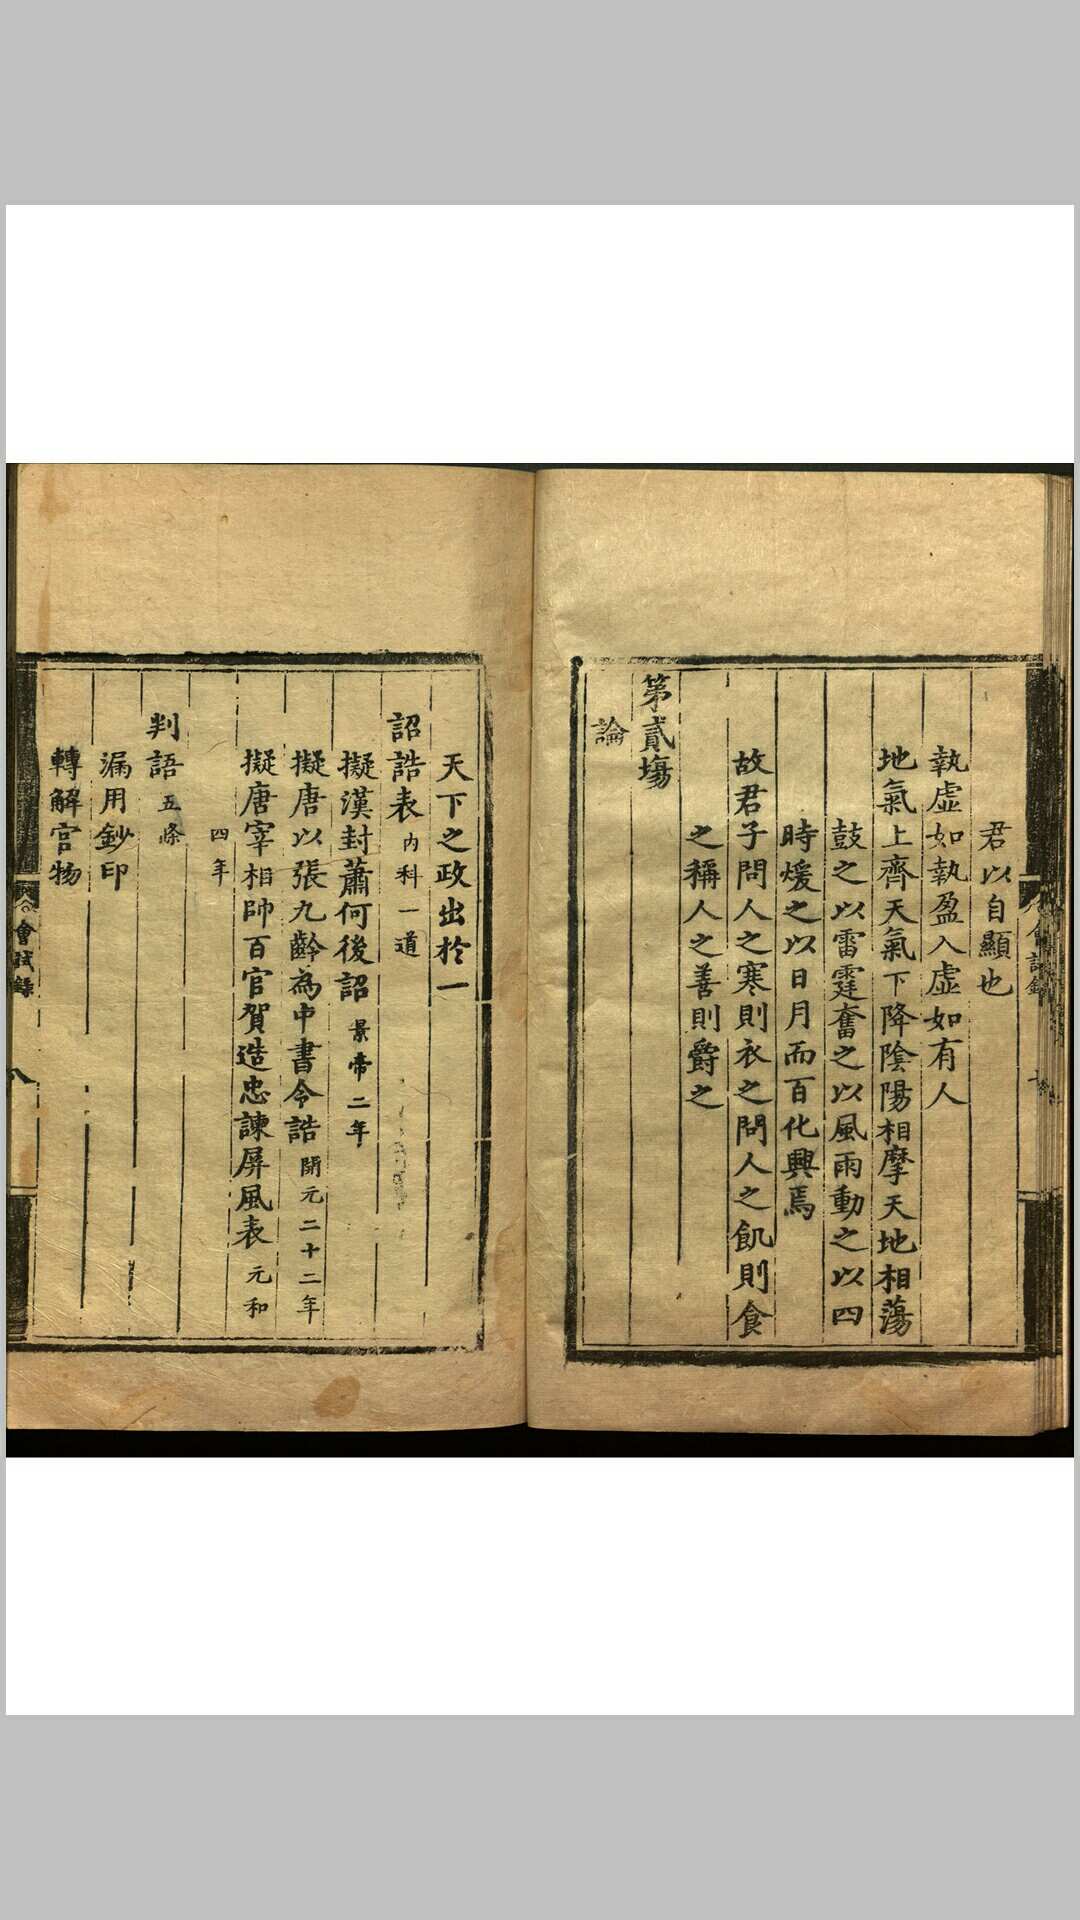 君以自顯也
執虛如執盈入虛如有人
地氣上齊天氣下降陰陽相摩天地相蕩
鼓之以雷霆奮之以風雨動之以四
時煖之以日月而百化興焉
故君子問人之寒則衣之問人之飢則食
之稱人之善則爵之
第貳塲
論
天下之政出於一
詔誥表 內科一道
擬漢封蕭何後詔 景帝二年
擬唐以張九齡為中書令誥 開元二十二年
擬唐宰相帥百官賀造忠諫屏風表 元和
四年
判語 五條
漏用鈔印
轉解官物
會試錄
八